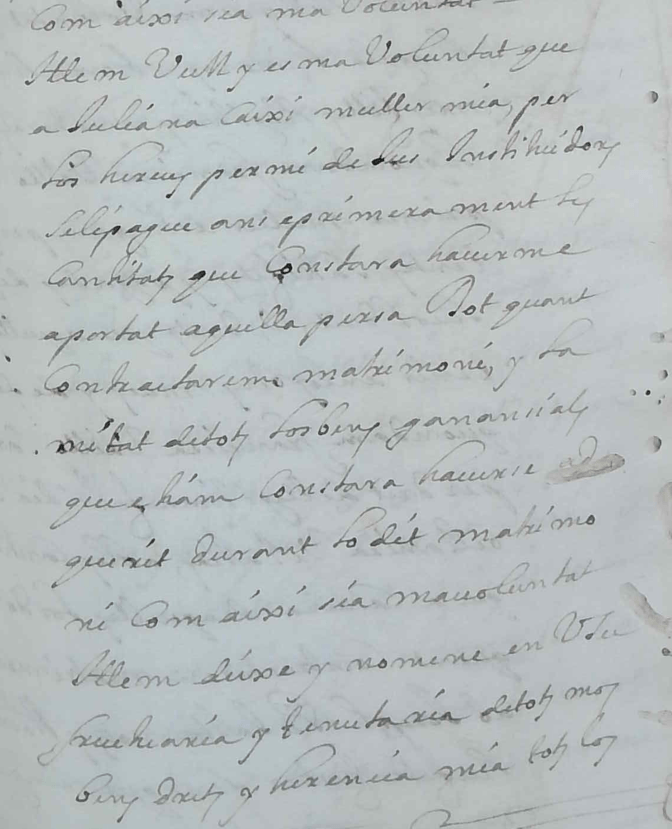 Com aixi sia ma Voluntat
Ittem Vull y es ma Voluntat que
a Juliana Caixi muller mia, per
los hereus per mi de sus Instituidors
seli pague ans e primerament les
Cantitats que Constara haverme
aportat aquella persa Dot quant
Contractarem matrimoni, y la
mitat detots losbens gananсials
que Constara haverse ad
querit durant lo dit matrimo
ni Com aixi sia mavoluntat
Ittem deixe y nomene en Usu
fructuaria y tenutaria detots mos
bens drets y herencia mia tots los